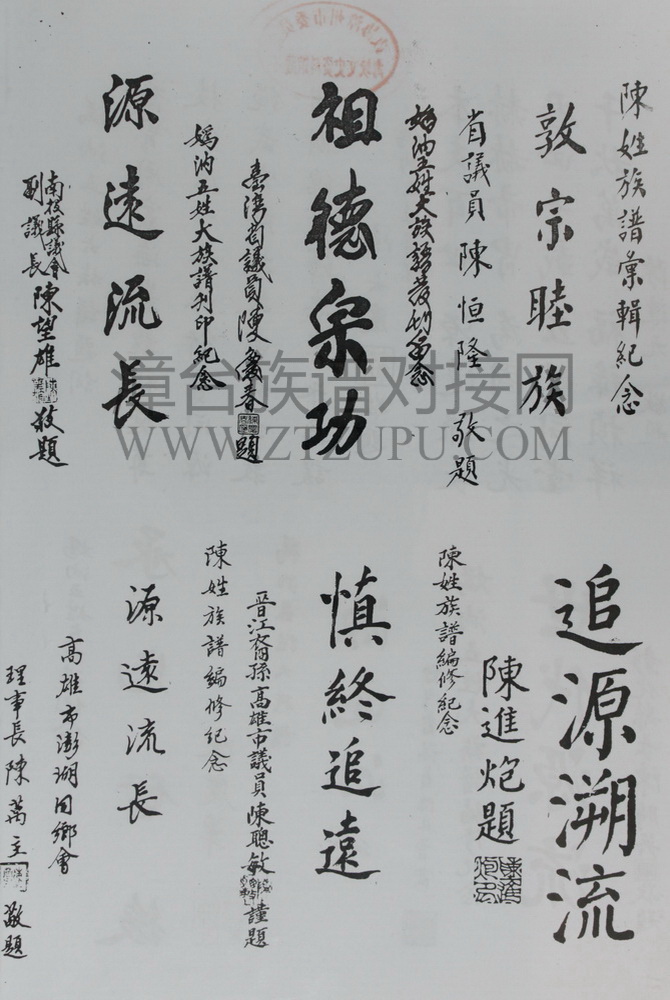 陳姓族譜彙輯紀念
敦宗睦族
省議員陳恒隆敬題
媯汭五姓大族譜
祖德宗功
臺灣省議員陳
題
媯汭五姓大族譜刊印紀念
源遠流長
南投縣議會
副議長陳望雄
敬題
漳台族谱对接网
WWW.ZTZUPU.COM
追源溯流
陳進炮題
陳姓族譜編修紀念
慎終追遠
晋江裔孫高雄市議員陳聰敏
謹題
陳姓族譜編修紀念
源遠流長
高雄市澎湖同鄉會
理事長陳萬主
敬題